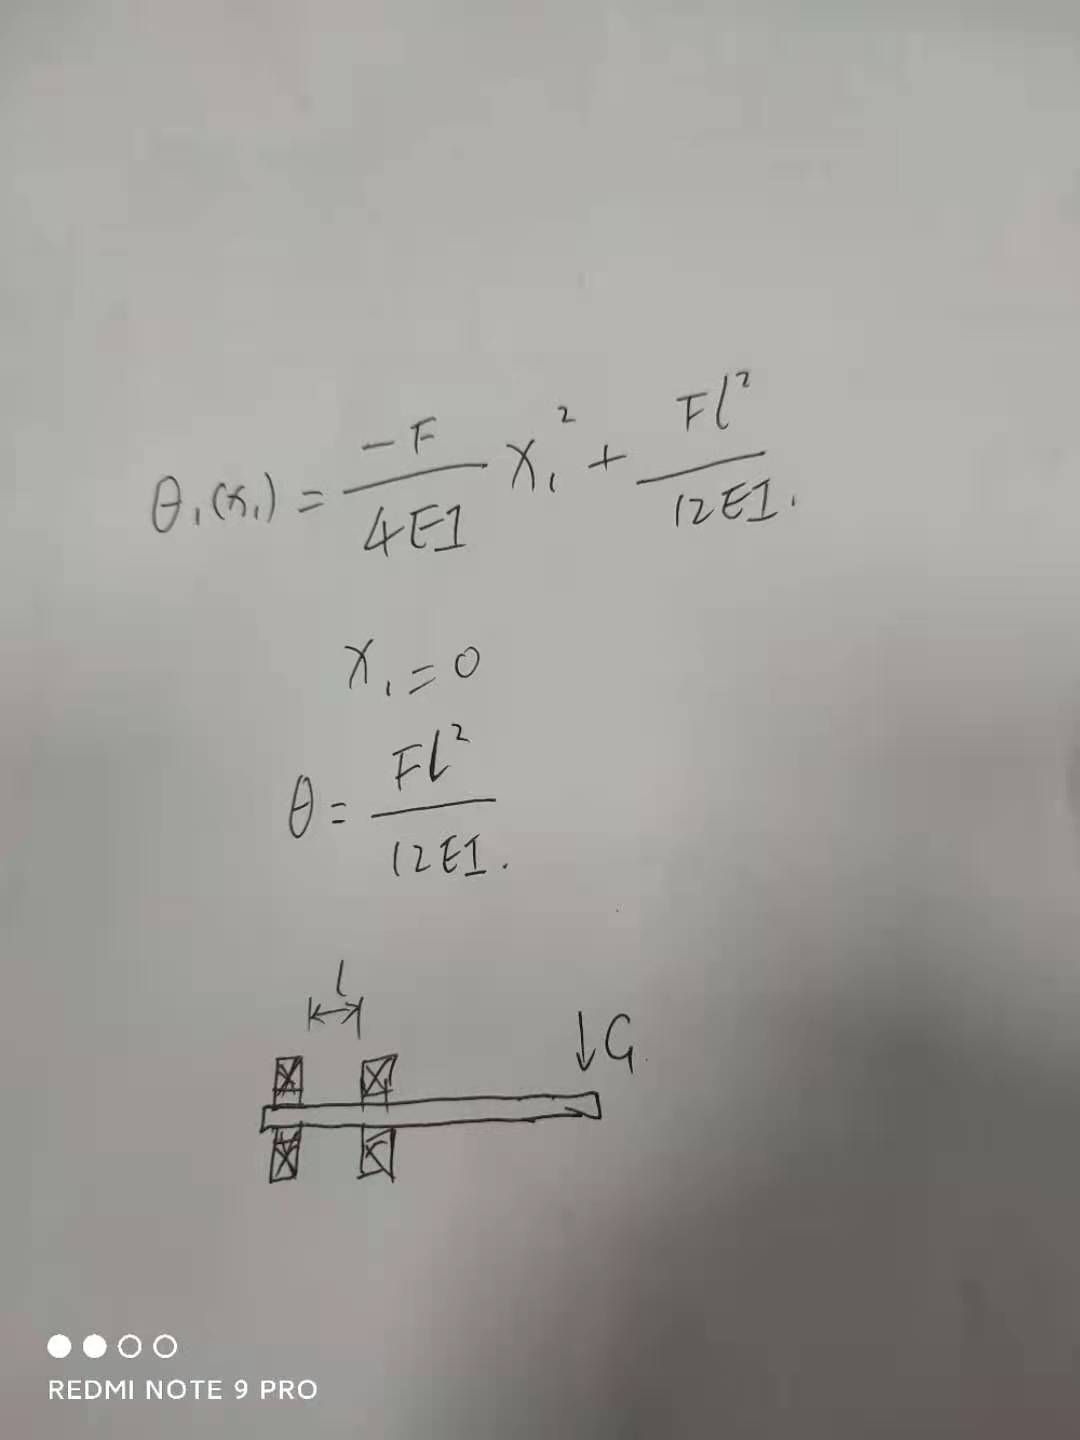 θ₁(x₁) = -F/4EI x₁² + Fl²/12EI.
x₁ = 0
θ = Fl²/12EI.
l
↓G
REDMI NOTE 9 PRO